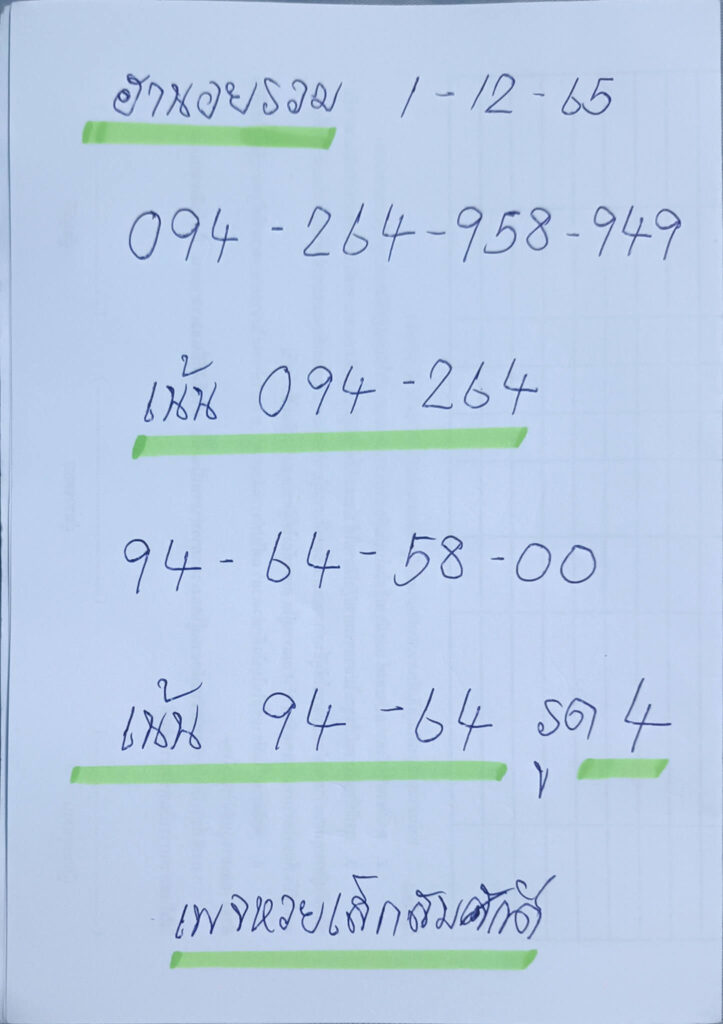 ฮานอยรวม 1-12-65
094-264-958-949
เน้น 094-264
94-64-58-00
เน้น 94-64 รูด 4
เพจหวยเล็กสัมศักดิ์